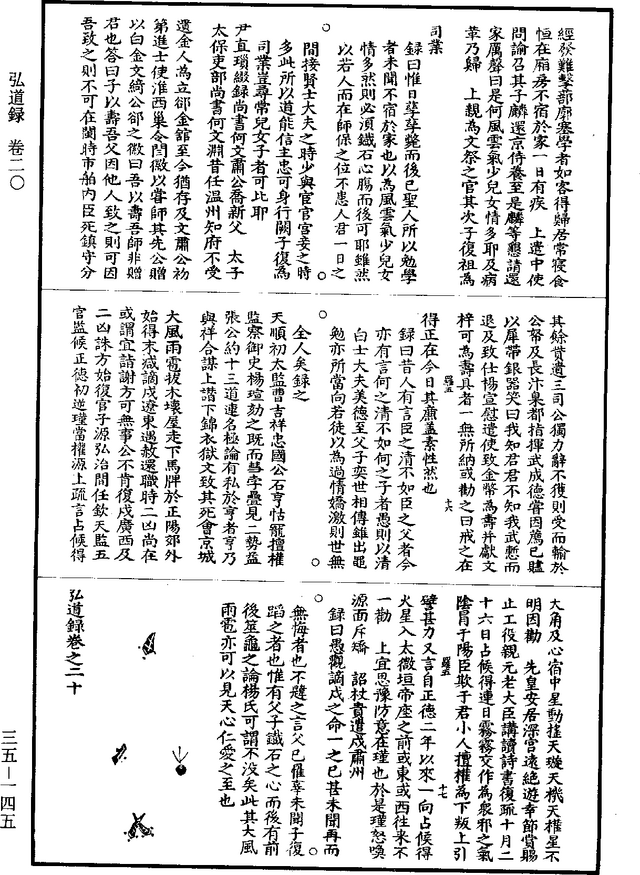 弘道録 卷二〇
三五—一四五
經發難擊部廓塞學者如客得歸居常寢食
恒在廂房不宿於家一日有疾 上遣中使
問諭召其子麟還京侍養至是麟等懇請還
家厲聲曰是何風雲氣少兒女情多耶及病
革乃歸 上親為文祭之官其次子復祖為
司業
録曰惟日孳孳斃而後已聖人所以勉學
者未聞不宿於家也以為風雲氣少兒女
情多然則必須鐵石心腸而後可耶雖然
以若人而在師保之位不患人君一日之
間接賢士大夫之時少與宦官宮妾之時
多此所以道能信主忠可身行闕子復為
司業豈尋常兒女子者可比耶
尹直瑣綴録尚書何文肅公喬新父 太子
太保吏部尚書何文淵昔任温州知府不受
遺金人為立卻金館至今猶存及文肅公初
第進士使淮西巢令閆徽以嘗師其先公贈
以白金文綺公卻之徽曰吾以壽吾師非贈
君也答曰子以壽吾父因他人致之則可因
吾致之則不可在閩時市舶内臣死鎮守分
其餘貲遺三司公獨力辭不獲則受而輸於
公帑及長汴臬都指揮武成德嘗因薦已贐
以犀帶銀器笑曰我知君君不知我武慙而
退及致仕楊宣慰遣使致金幣為壽并獻文
梓可為壽具者一無所納或勸之曰戒之在
得正在今日其廉蓋素性然也
録曰昔人有言臣之清不如臣之父者今
亦有言何之清不如何之子者愚則以清
白士大夫美德至父子奕世相傳雖出黽
勉亦所當向若徒以為過情矯激則世無
全人矣録之
天順初太監曹吉祥忠國公石亨怙寵擅權
監察御史楊瑄劾之既而彗孛疊見二勢益
張公約十三道連名極論有私於亨者亨乃
與祥合謀上譖下錦衣獄文致其死會京城
大風雨雹拔木壞屋走下馬牌於正陽郊外
始得末減謫戍遼東遇赦還職時二凶尚在
或謂宜請謝方可無事公不肯復戍廣西及
二凶誅方始復官子源弘治間任欽天監五
官監候正德初逆瑾當權源上疏言占候得
大角及心宿中星動搖天璇天機天權星不
明因勸 先皇安居深宫遠絶遊幸節賞賜
止工役親元老大臣講讀詩書復疏十月二
十六日占候得連日霧霧交作為衆邪之氣
陰冐于陽臣欺于君小人擅權為下叛上引
譬甚力又言自正德二年以來一向占候得
火星入太微垣帝座之前或東或西往來不
一勸 上宜思豫防意在瑾也於是瑾怒喚
源面斥矯 詔杖責遣戍肅州
録曰愚觀謫戍之命一之已甚未聞再而
無悔者也不韙之言父已罹辜未聞子復
蹈之者也惟有父子鐵石之心而後有前
後筮龜之論楊氏可謂不没矣此其大風
雨雹亦可以見天心仁愛之至也
弘道録卷之二十